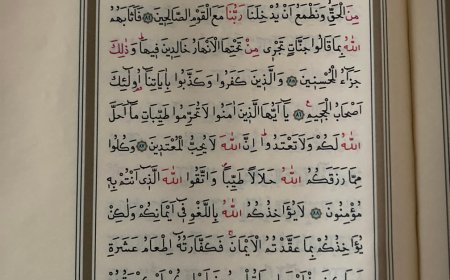 مِنَ الْحَقِّ وَنَطْمَعُ اَنْ يُدْخِلَنَا رَبُّنَا مَعَ الْقَوْمِ الصَّالِحِينَ ﴿٨٤﴾ فَاَثَابَهُمُ
اللّٰهُ بِمَا قَالُوا جَنَّاتٍ تَجْرِى مِنْ تَحْتِهَا الْاَنْهَارُ خَالِدِينَ فِيهَا وَذٰلِكَ
جَزَٓاءُ الْمُحْسِنِينَ ﴿٨٥﴾ وَالَّذِينَ كَفَرُوا وَكَذَّبُوا بِاٰيَاتِنَٓا اُولٰٓئِكَ
اَصْحَابُ الْجَحِيمِ ﴿٨٦﴾ يَٓا اَيُّهَا الَّذِينَ اٰمَنُوا لَا تُحَرِّمُوا طَيِّبَاتِ مَٓا اَحَلَّ
اللّٰهُ لَكُمْ وَلَا تَعْتَدُوا اِنَّ اللّٰهَ لَا يُحِبُّ الْمُعْتَدِينَ ﴿٨٧﴾ وَكُلُوا
مِمَّا رَزَقَكُمُ اللّٰهُ حَلَالًا طَيِّبًا وَاتَّقُوا اللّٰهَ الَّذِٓى اَنْتُمْ بِهِ
مُؤْمِنُونَ ﴿٨٨﴾ لَا يُؤَاخِذُكُمُ اللّٰهُ بِاللَّغْوِ فِٓى اَيْمَانِكُمْ وَلٰكِنْ
يُؤَاخِذُكُمْ بِمَا عَقَّدْتُمُ الْاَيْمَانَ فَكَفَّارَتُهُٓ اِطْعَامُ عَشَرَةِ